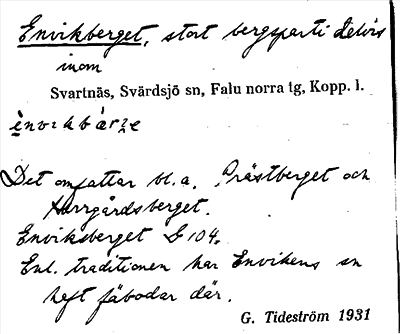 Envikberget, stort bergsparti delvis
inom
Svartnäs, Svärdsjö sn, Falu norra tg, Kopp. l.
Det omfattar bl.a. Prästberget och
Herrgårdsberget.
Enviksberget G 104.
Enl. traditionen har Envikens sn
haft fäbodar där.
G. Tideström 1931